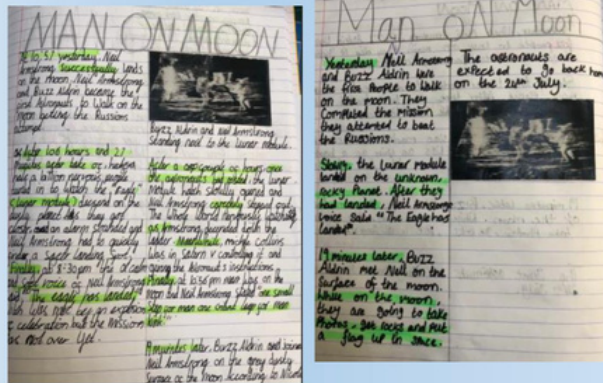 MAN ON MOON
yesterday, Neil
Armstrong successfully lands
on the moon, Neil Armstrong
and Buzz Aldrin became the
Astronauts to Walk on the
Moon the Russians
Buzz Aldrin and Neil Armstrong
Standing next to the Lunar Module.
hours and 21
minutes after take
a billion people
in to watch the "Eagle"
(lunar module) descend on the
they are
and an alarm sounded and
Neil Armstrong had to quickly
a safer landing
Finally, at 8:30pm the
voice of Neil Armstrong
"The eagle has landed"
was not an explosion
celebration but the Mission
as not over yet.
hours once
the astronauts the lunar
Module hatch slowly opened and
Neil Armstrong carefully stepped out.
The Whole World nervously watched
as Armstrong descended with the
ladder. Meanwhile, Collins
was in controlling it and
giving the Astronaut's instructions.
Finally at 10:56 pm man was on the
Moon and Neil Armstrong stated one small
step for man one giant leap for man
kind".
minutes later, Buzz Aldrin and joined
Neil Armstrong on the grey dusty
Surface of the moon According to
Man oN Moon
Yesterday, Neil Armstrong
and Buzz Aldrin were
the first People to walk
on the moon. They
Completed the mission
they attempted to beat
the Russions.
the lunar Module
landed on the unknown,
rocky Planet. After they
had landed, Neil Armstrong
voice said "The Eagle has
landed".
19 minutes later, Buzz
Aldrin met Neil on the
surface of the moon.
While on the moon,
they are going to take
Photos, get rocks and Put
a flag up in space.
The astronauts are
expected to go back home
on the 24th July.